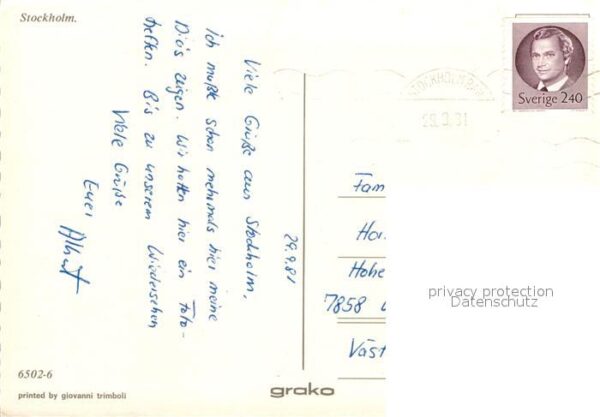 Stockholm.
Viele Grüße aus Stockholm.
Ich mußte schon mehrmals hier meine
Dias zeigen. Wir hatten hier ein Foto-
treffen. Bis zu unserem Wiedersehen
Viele Grüße
Euer Albert
29.9.81
STOCKHOLM BAN
Sverige 240
Fam
Hohe
7858
Väst
privacy protection
Datenschutz
6502-6
printed by giovanni trimboli
grako